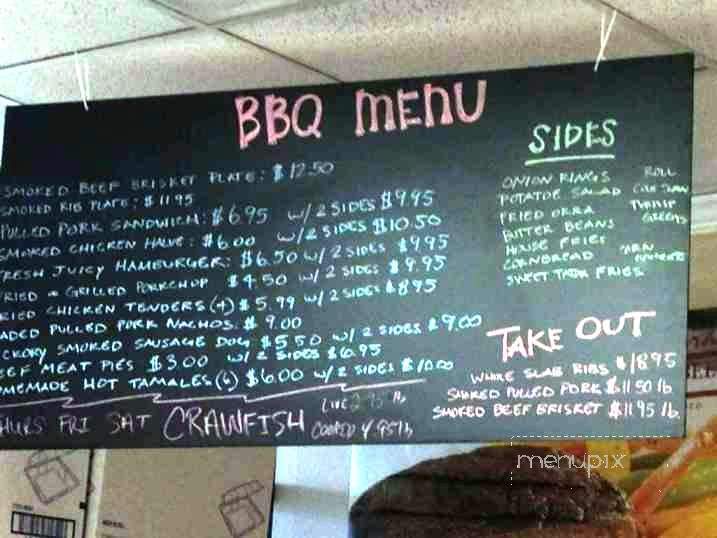 BBQ MENU
SMOKED BEEF BRISKET PLATE: $12.50
SMOKED RIB PLATE: $11.95
PULLED PORK SANDWICH: $6.95 w/ 2 SIDES $9.95
SMOKED CHICKEN HALVE: $6.00 w/ 2 SIDES $10.50
FRESH JUICY HAMBURGER: $6.50 w/ 2 SIDES $9.95
FRIED or GRILLED PORKCHOP $4.50 w/ 2 SIDES $9.95
RIED CHICKEN TENDERS (4) $5.99 w/ 2 SIDES $8.95
ADED PULLED PORK NACHOS: $9.00
CKORY SMOKED SAUSAGE DOG $5.50 w/ 2 SIDES $9.00
EEF MEAT PIES $3.00 w/ 2 SIDES $6.95
OMEMADE HOT TAMALES (6) $6.00 w/ 2 SIDES $10.00
HURS FRI SAT CRAWFISH
LIVE 2.95 lb
COOKED 4.95 lb
SIDES
ONION RINGS
POTATO SALAD
FRIED OKRA
BUTTER BEANS
HOUSE FRIES
CORNBREAD
SWEET TATER FRIES
ROLL
COLE SLAW
TURNIP
GREENS
TAKE OUT
WHOLE SLAB RIBS $18.95
SMOKED PULLED PORK $11.50 lb
SMOKED BEEF BRISKET $11.95 lb.
menupix